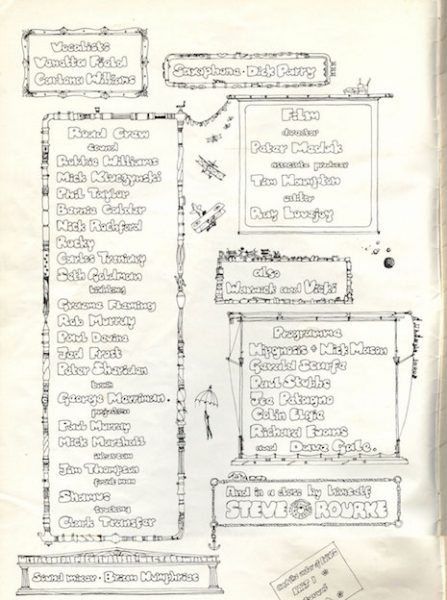 Vocalists
Vanetta Field
Carlena Williams
Saxaphone · Dick Parry
Road Crew
sound
Robbie Williams
Mick Kluczynski
Phil Taylor
Bernie Calder
Nick Rochford
Rocky
Carlos Trenidey
Seth Goldman
Graeme Fleming
Rob Murray
Paul Devine
Jed Frost
Peter Sheridan
George Merriman.
projection
Paul Murray
Mick Marshall
Jim Thompson
Shamus
trucking
Chuck Transfer
Sound mixer · Brian Humphries
Film
director
Peter Medak
associate producer
Tim Hampton
editor
Ray Lovejoy
also
Warwick and Vicki
Programme
Hipgnosis + Nick Mason
Gerald Scarfe
Paul Stubbs
Joe Petagno
Colin Elgie
Richard Evans
and Dave Gale.
And in a class by himself
STEVE O'ROURKE